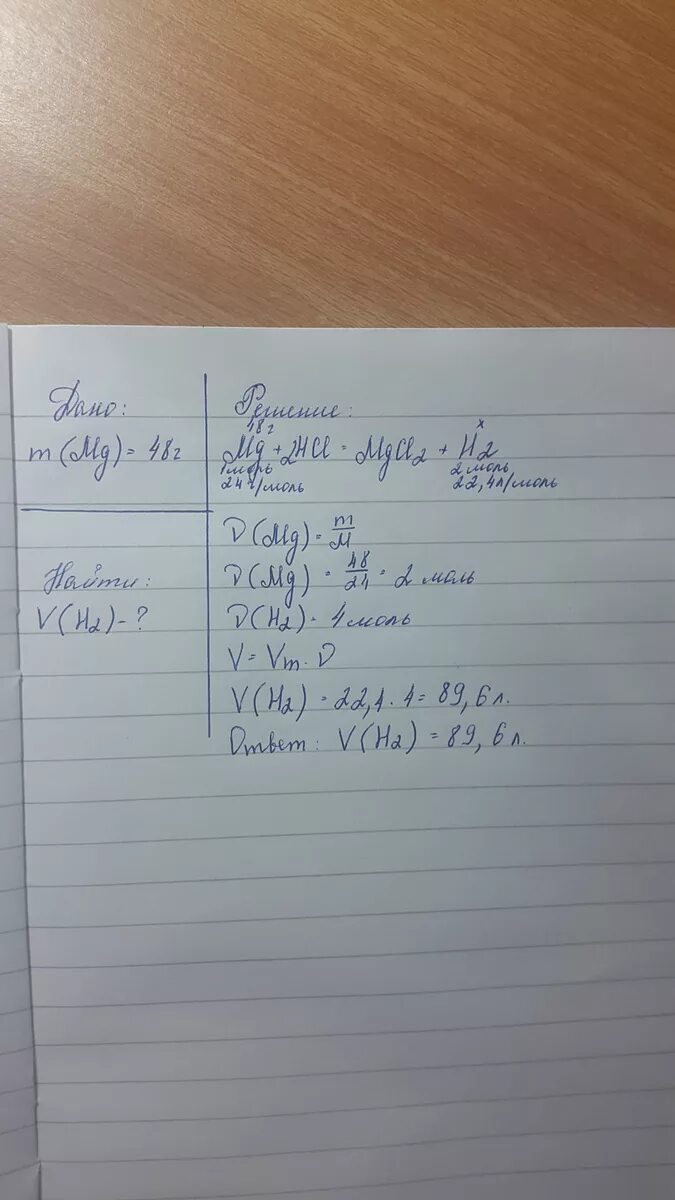 Дано:
m (Mg) = 48г
Найти:
V(H2) - ?
Решение:
48г x
Mg + 2HCl = MgCl2 + H2
1моль 2 моль
24г/моль 22,4л/моль
D (Mg) = m/M
D (Mg) = 48/24 = 2 моль
D (H2) = 4 моль
V = Vm · D
V(H2) = 22,4 · 4 = 89,6 л.
Ответ: V(H2) = 89,6 л.